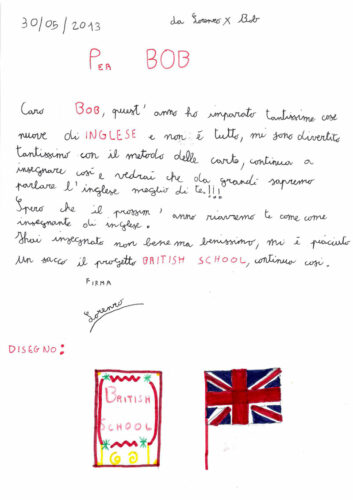 30/05/2013
da Lorenzo X Bob
PER BOB
Caro BOB, quest' anno ho imparato tantissime cose
nuove di INGLESE e non è tutto, mi sono divertito
tantissimo con il metodo delle carte, continua a
insegnare così e vedrai che da grandi sapremo
parlare l'inglese meglio di te!!!
Spero che il prossim' anno riavremo te come come
insegnante di inglese.
Hai insegnato non bene ma benissimo, mi è piaciuto
un sacco il progetto BRITISH SCHOOL, continua così.
FIRMA
Lorenzo
DISEGNO:
BRITISH
SCHOOL